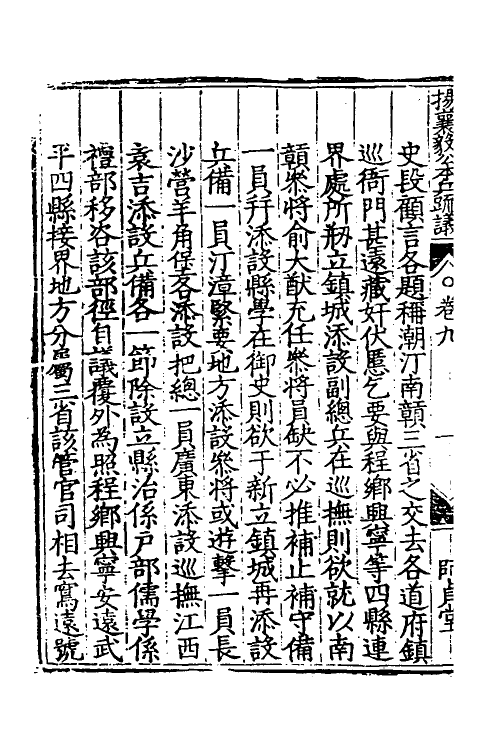 楊襄毅公本兵疏議
卷九
一
師貞堂
史段顧言各題稱潮汀南贛三省之交去各道府鎮
巡衙門甚遠藏奸伏慝乞要與程鄉興寧等四縣連
界處所剏立鎮城添設副總兵在巡撫則欲就以南
贛叅將俞大猷充任叅將員缺不必推補止補守備
一員并添設縣學在御史則欲于新立鎮城再添設
兵備一員汀漳緊要地方添設叅將或遊擊一員長
沙營羊角堡各添設把總一員廣東添設巡撫江西
袁吉添設兵備各一節除設立縣治係戶部儒學係
禮部移咨該部徑自議覆外為照程鄉興寧安遠武
平四縣接界地方分屬三省該管官司相去寫遠號